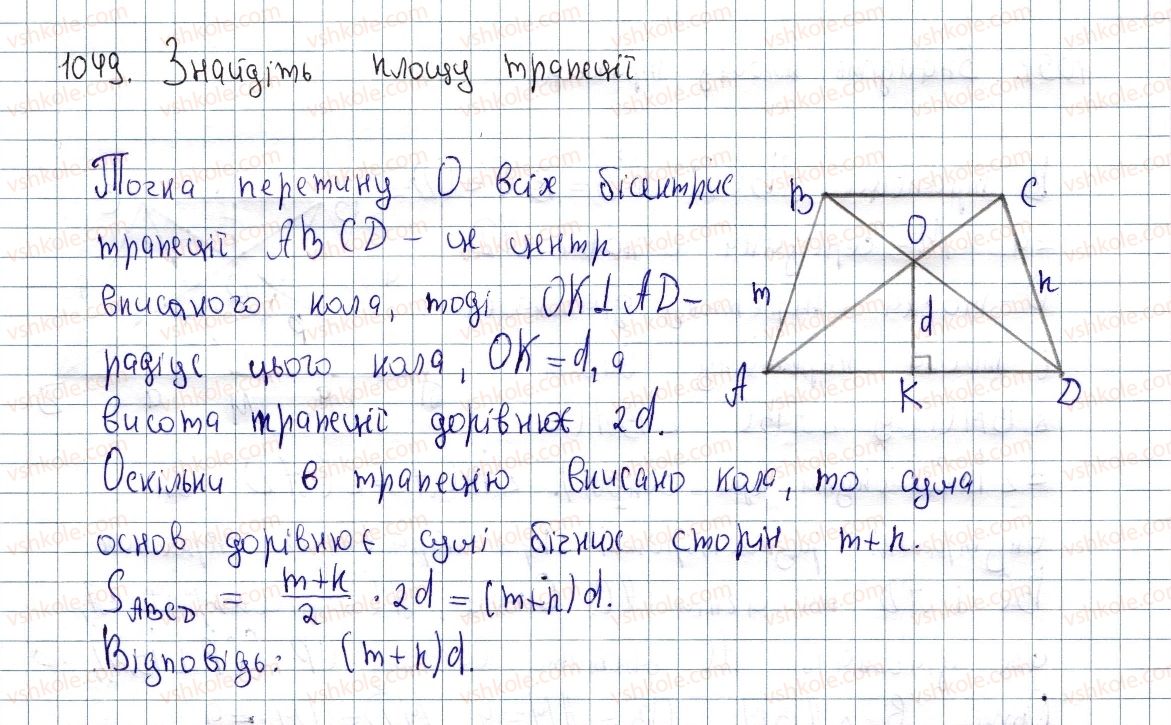 1049. Знайдіть площу трапеції
Точка перетину O всіх бісектрис
трапеції ABCD – це центр
вписаного кола, тоді OK⊥AD –
радіус цього кола, OK = d, а
висота трапеції дорівнює 2d.
Оскільки в трапецію вписано кола, то сума
основ дорівнює сумі бічних сторін m+n.
S_ABCD = (m+n)/2 · 2d = (m+n)d.
Відповідь: (m+n)d.
B C
O
m n
d
A K D
vshkole.com